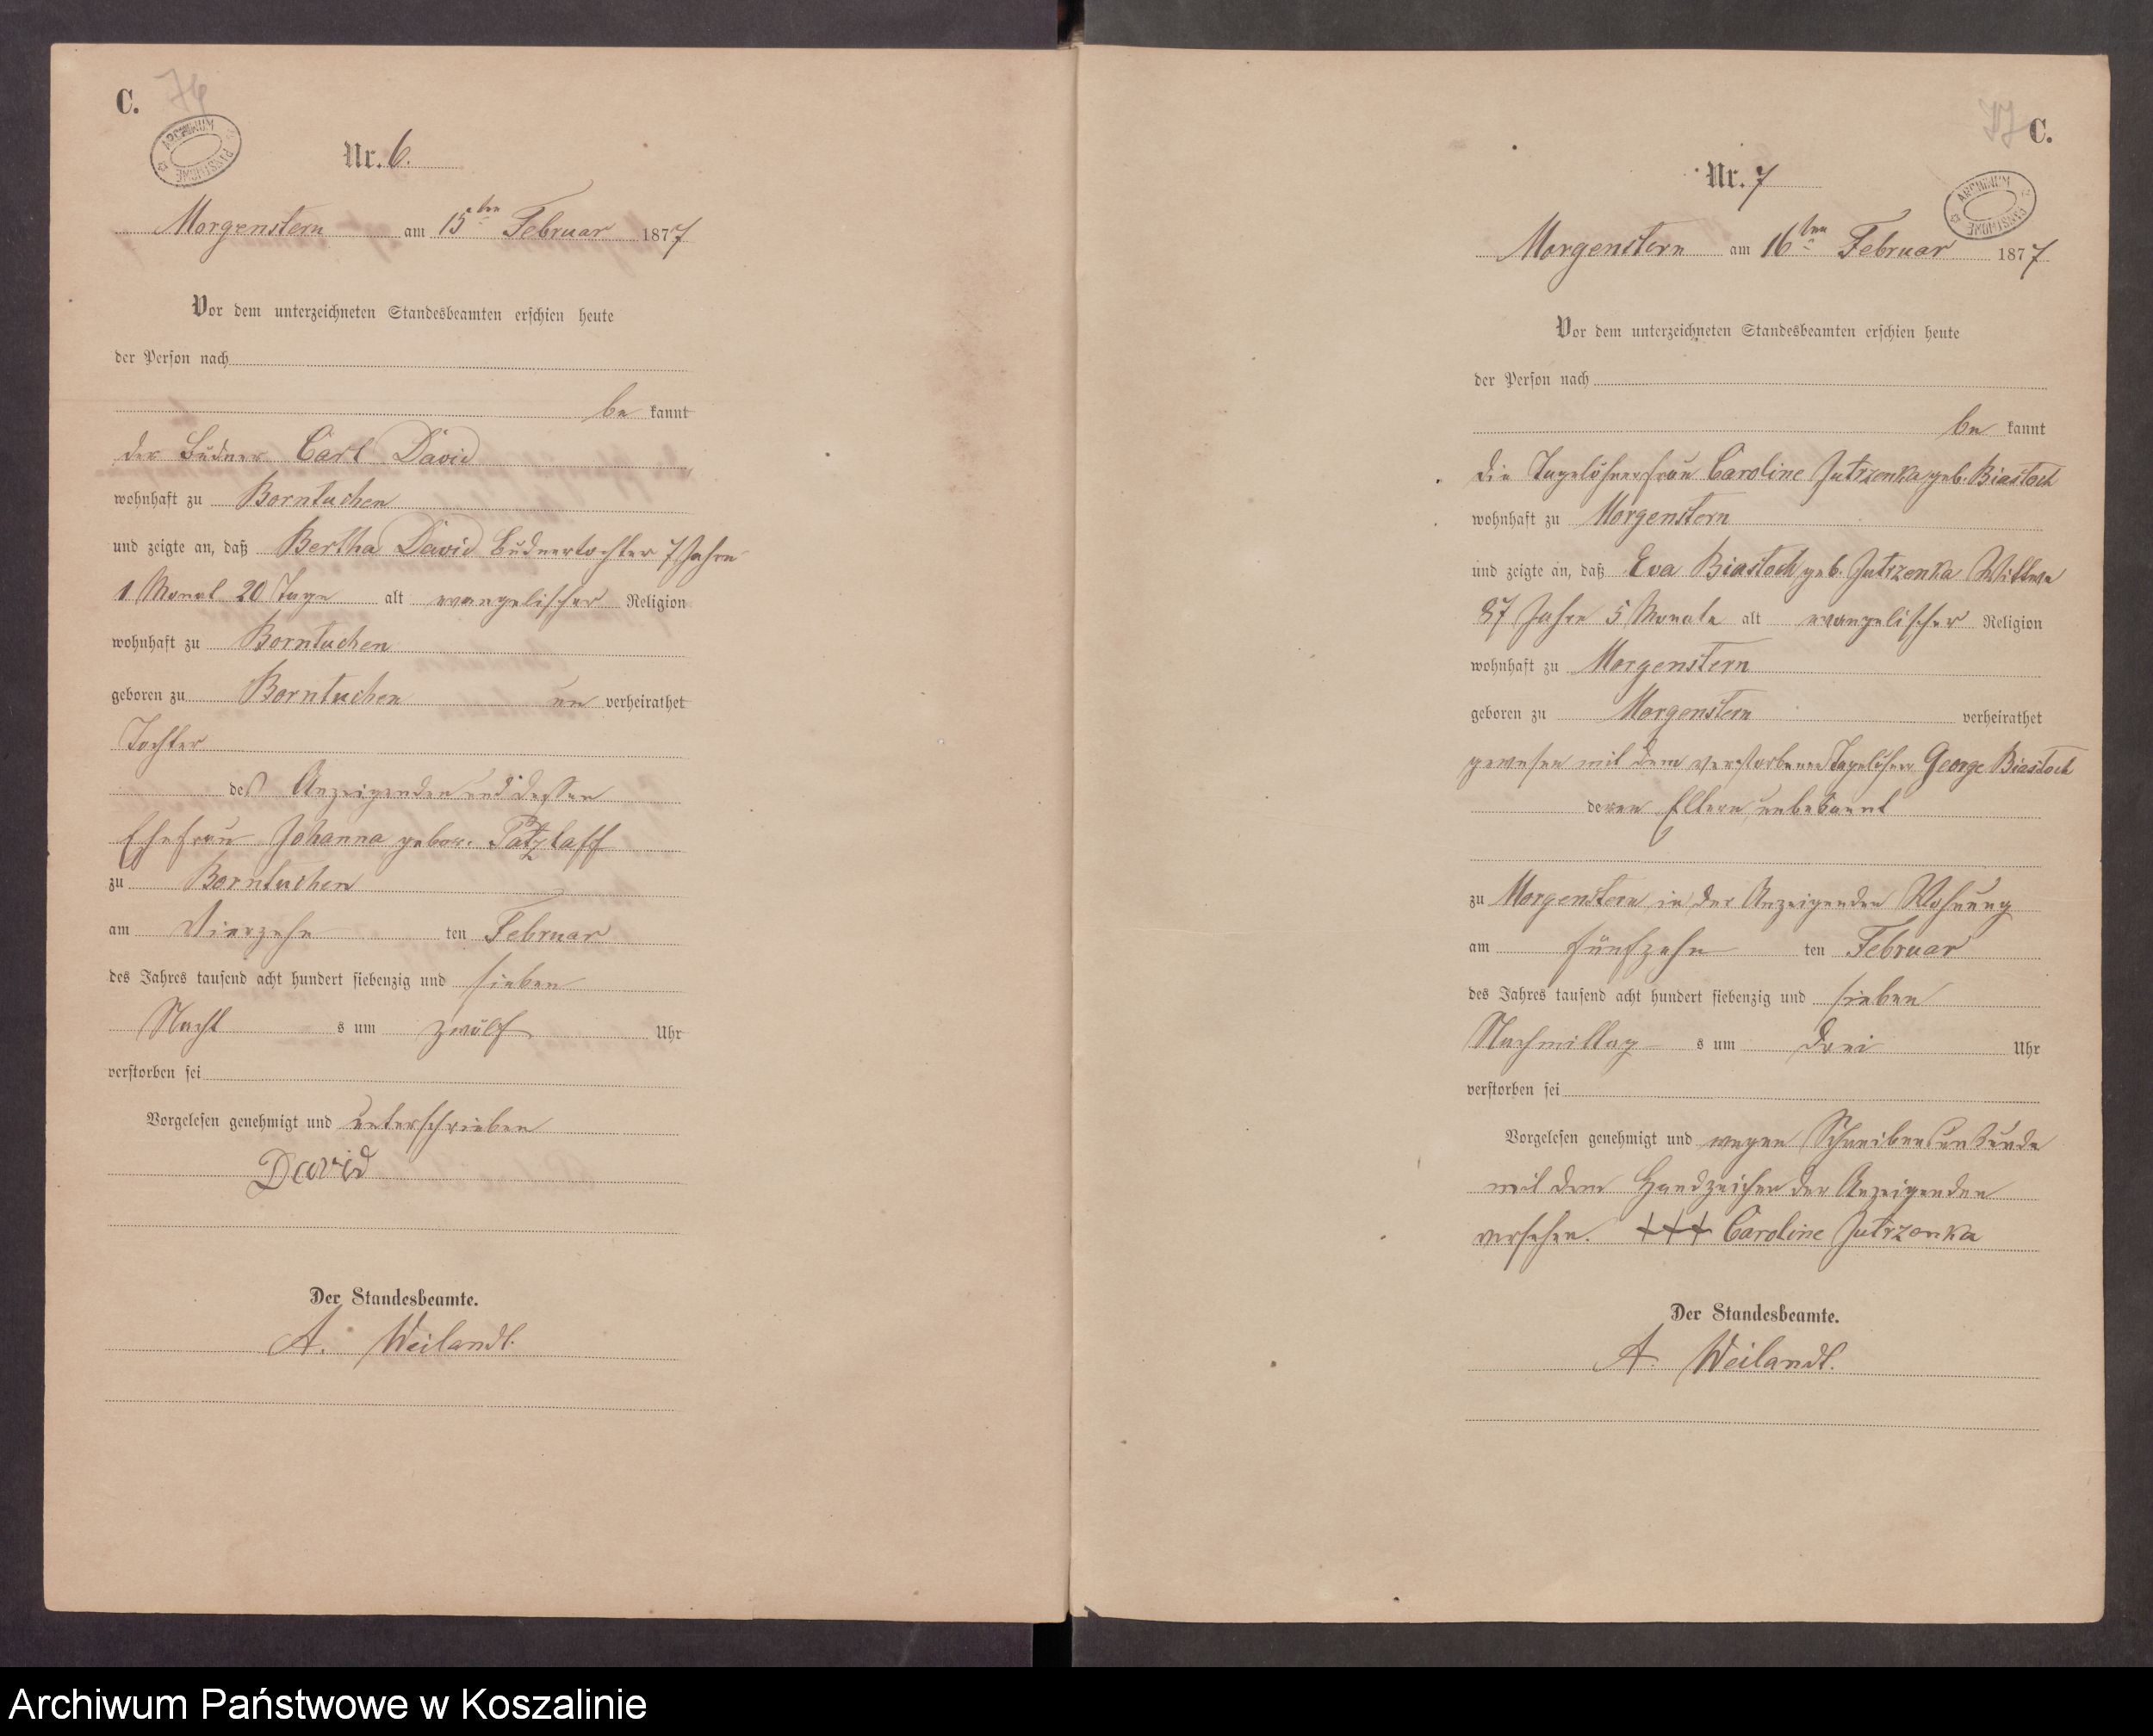 C.
76
ARCHIWUM PAŃSTWOWE
Nr. 6.
Morgenstern am 15ten Februar 1877
Vor dem unterzeichneten Standesbeamten erschien heute
der Person nach
be kannt
der Büdner Carl David
wohnhaft zu Borntuchen
und zeigte an, daß Bertha David Büdnertochter 7 Jahre
1 Monat 20 Tage alt evangelischer Religion
wohnhaft zu Borntuchen
geboren zu Borntuchen un verheirathet
Tochter
des Anzeigenden und dessen
Ehefrau Johanna gebor. Patzlaff
zu Borntuchen
am Vierzehn ten Februar
des Jahres tausend acht hundert siebenzig und sieben
Nacht s um zwölf Uhr
verstorben sei
Vorgelesen genehmigt und unterschrieben
David
Der Standesbeamte.
A. Weilandt.
77
C.
ARCHIWUM PAŃSTWOWE
Nr. 7
Morgenstern am 16ten Februar 1877
Vor dem unterzeichneten Standesbeamten erschien heute
der Person nach
be kannt
die Tagelöhnerfrau Caroline Jutrzonka geb. Biastoch
wohnhaft zu Morgenstern
und zeigte an, daß Eva Biastoch geb. Jutrzonka Wittwe
87 Jahre 5 Monate alt evangelischer Religion
wohnhaft zu Morgenstern
geboren zu Morgenstern verheirathet
gewesen mit dem verstorbenen Tagelöhner George Biastoch
deren Eltern unbekannt
zu Morgenstern in der Anzeigenden Wohnung
am fünfzehn ten Februar
des Jahres tausend acht hundert siebenzig und sieben
Nachmittag s um drei Uhr
verstorben sei
Vorgelesen genehmigt und wegen Schreibensunkunde
mit dem Handzeichen der Anzeigenden
versehen. +++ Caroline Jutrzonka
Der Standesbeamte.
A. Weilandt.
Archiwum Państwowe w Koszalinie